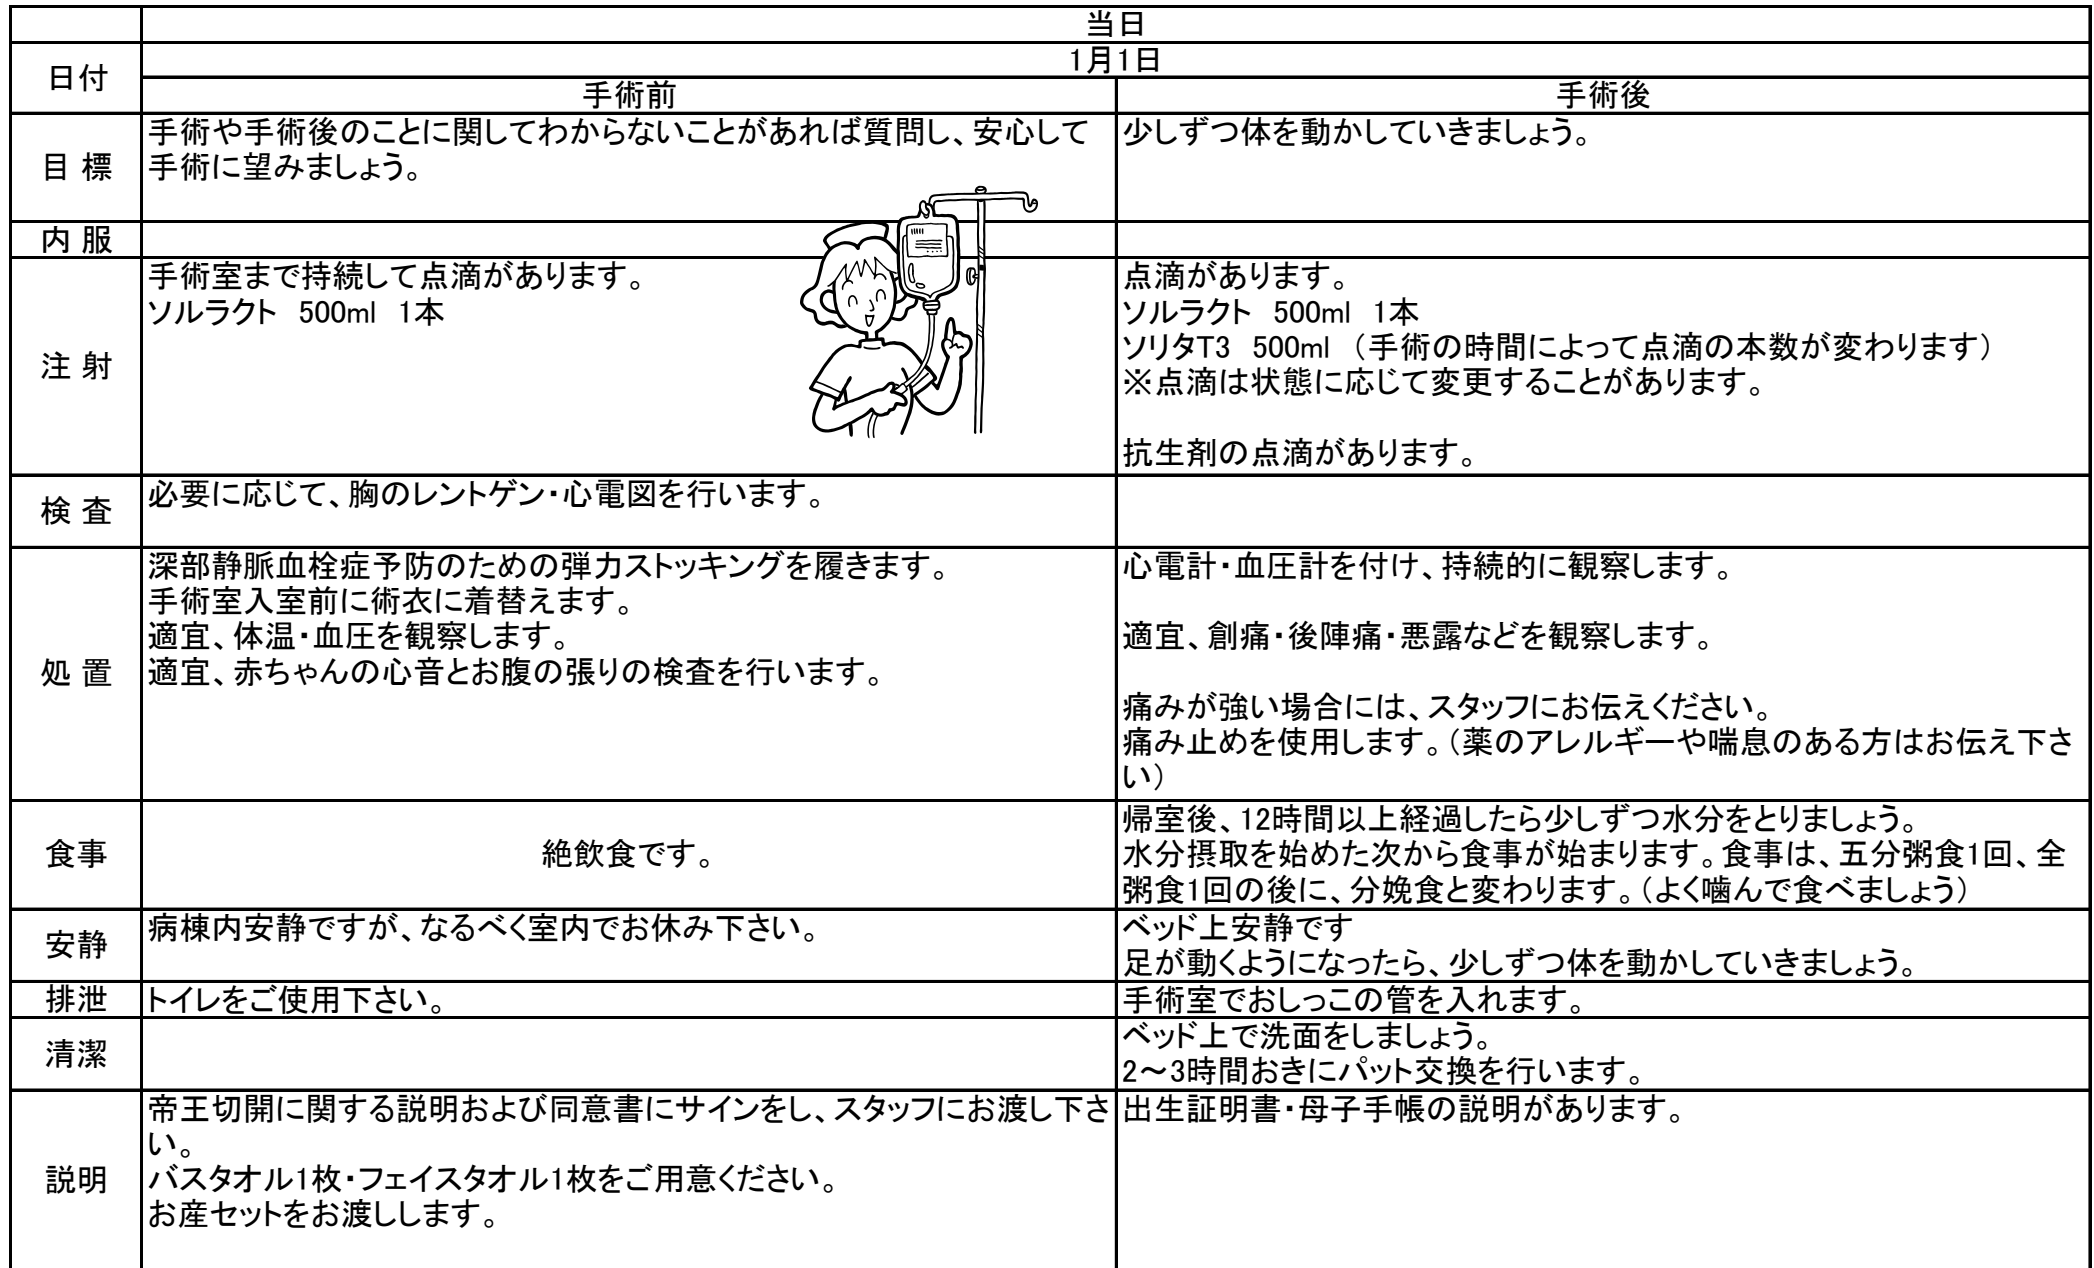 当日
日付
1月1日
手術前
手術後
目 標
手術や手術後のことに関してわからないことがあれば質問し、安心して
手術に望みましょう。
少しずつ体を動かしていきましょう。
内 服
注 射
手術室まで持続して点滴があります。
ソルラクト　500ml　1本
点滴があります。
ソルラクト　500ml　1本
ソリタT3　500ml　（手術の時間によって点滴の本数が変わります）
※点滴は状態に応じて変更することがあります。
抗生剤の点滴があります。
検 査
必要に応じて、胸のレントゲン・心電図を行います。
処 置
深部静脈血栓症予防のための弾力ストッキングを履きます。
手術室入室前に術衣に着替えます。
適宜、体温・血圧を観察します。
適宜、赤ちゃんの心音とお腹の張りの検査を行います。
心電計・血圧計を付け、持続的に観察します。
適宜、創痛・後陣痛・悪露などを観察します。
痛みが強い場合には、スタッフにお伝えください。
痛み止めを使用します。（薬のアレルギーや喘息のある方はお伝え下さ
い）
食事
絶飲食です。
帰室後、12時間以上経過したら少しずつ水分をとりましょう。
水分摂取を始めた次から食事が始まります。食事は、五分粥食1回、全
粥食1回の後に、分娩食と変わります。（よく噛んで食べましょう）
安静
病棟内安静ですが、なるべく室内でお休み下さい。
ベッド上安静です
足が動くようになったら、少しずつ体を動かしていきましょう。
排泄
トイレをご使用下さい。
手術室でおしっこの管を入れます。
清潔
ベッド上で洗面をしましょう。
2～3時間おきにパット交換を行います。
説明
帝王切開に関する説明および同意書にサインをし、スタッフにお渡し下さ
い。
バスタオル1枚・フェイスタオル1枚をご用意ください。
お産セットをお渡しします。
出生証明書・母子手帳の説明があります。